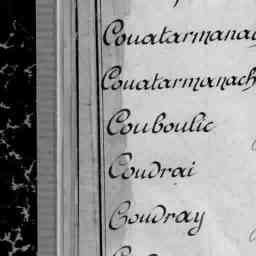 Couatarmanac
Couatarmanach
Couboulic
Coudrai
Coudray